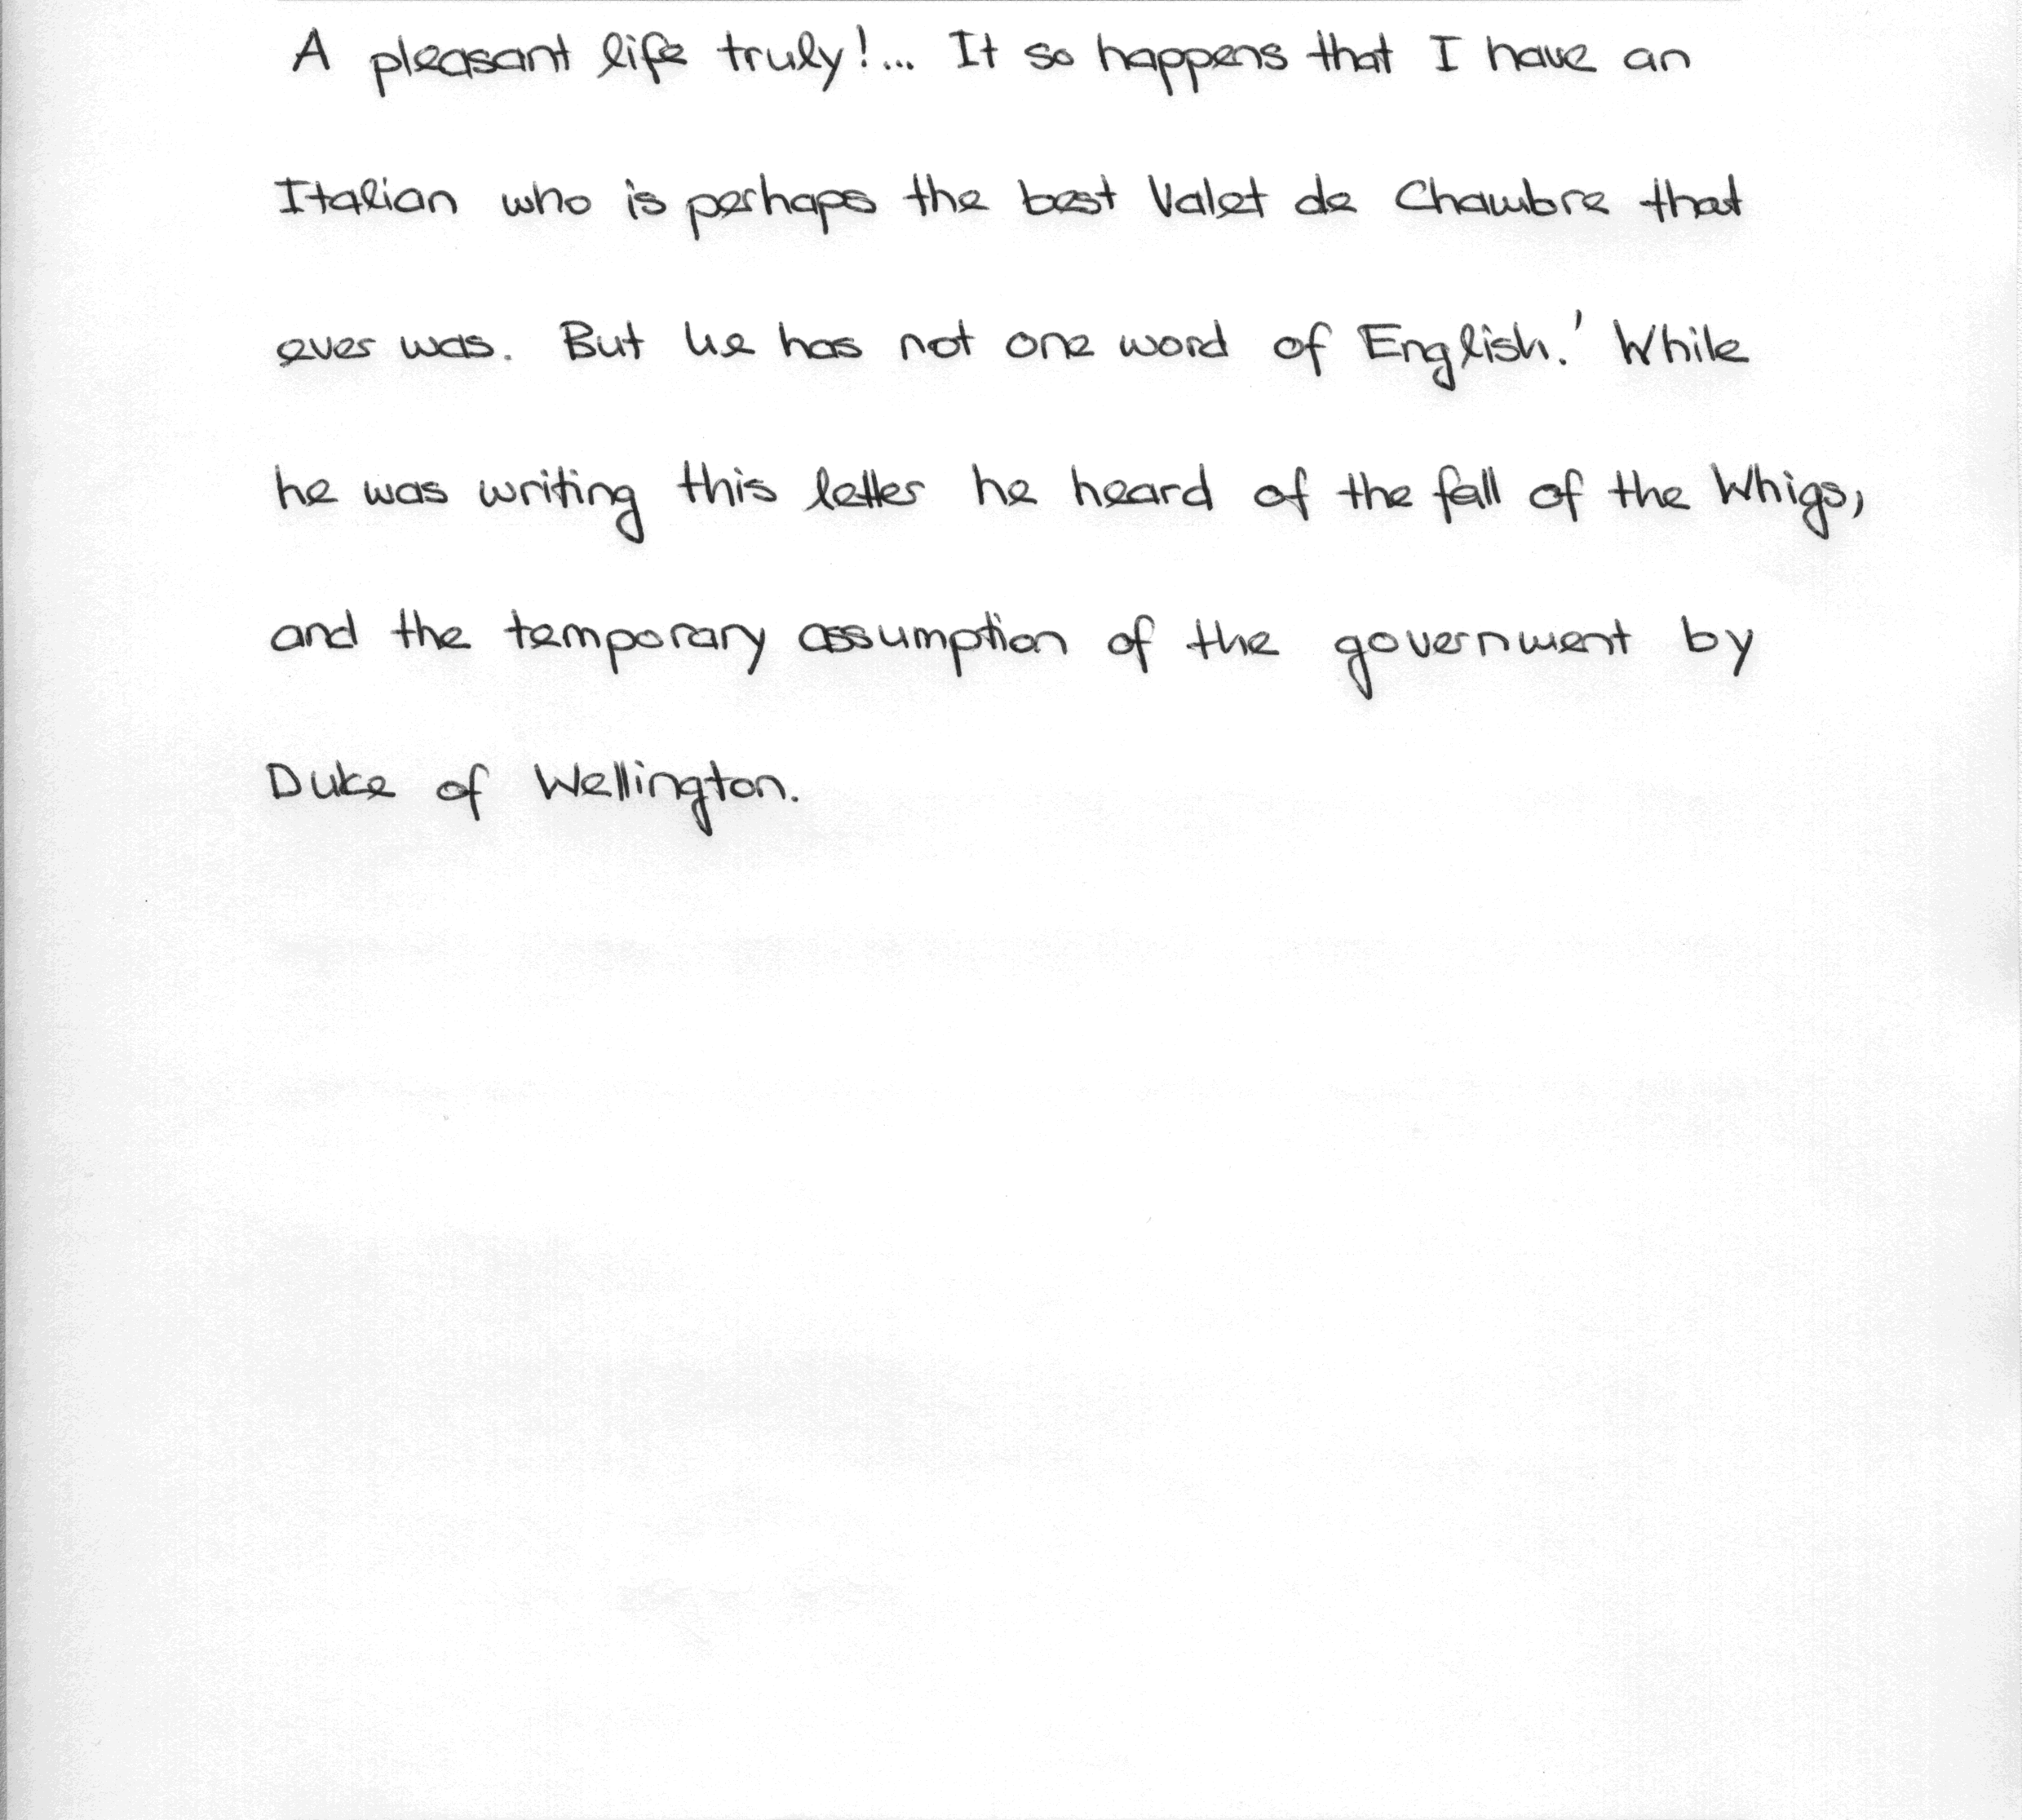 A pleasant life truly!... It so happens that I have an
Italian who is perhaps the best Valet de Chambre that
ever was. But he has not one word of English.' While
he was writing this letter he heard of the fall of the Whigs,
and the temporary assumption of the government by
Duke of Wellington.